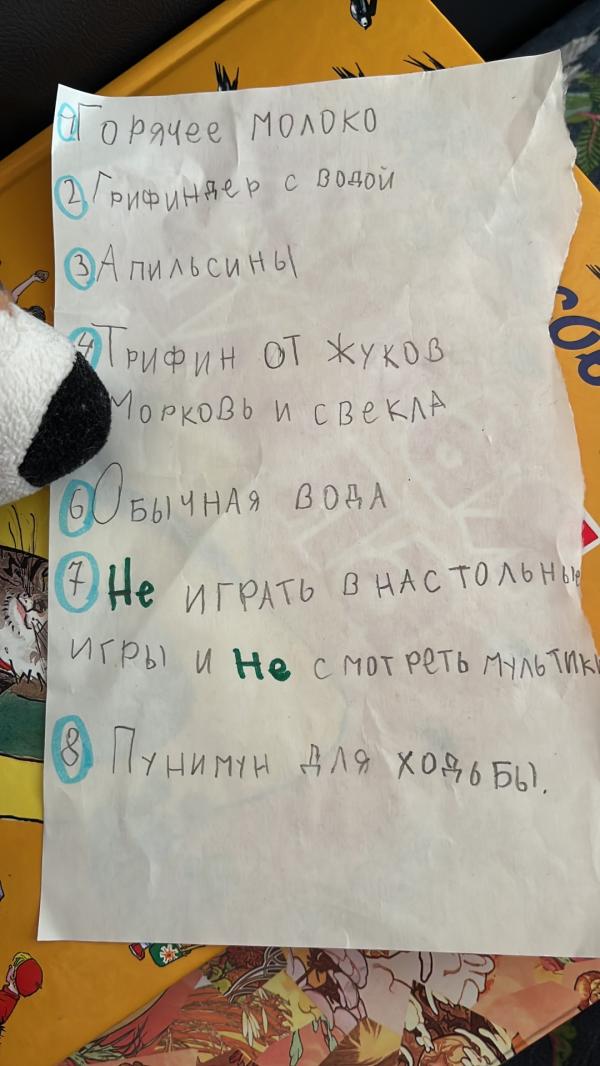 1 Горячее молоко
2 Грифиндер с водой
3 Апильсины
4 Трифин от жуков
Морковь и свекла
6 Обычная вода
7 Не играть в настольные
игры и Не смотреть мультики
8 Пунимун для ходьбы.